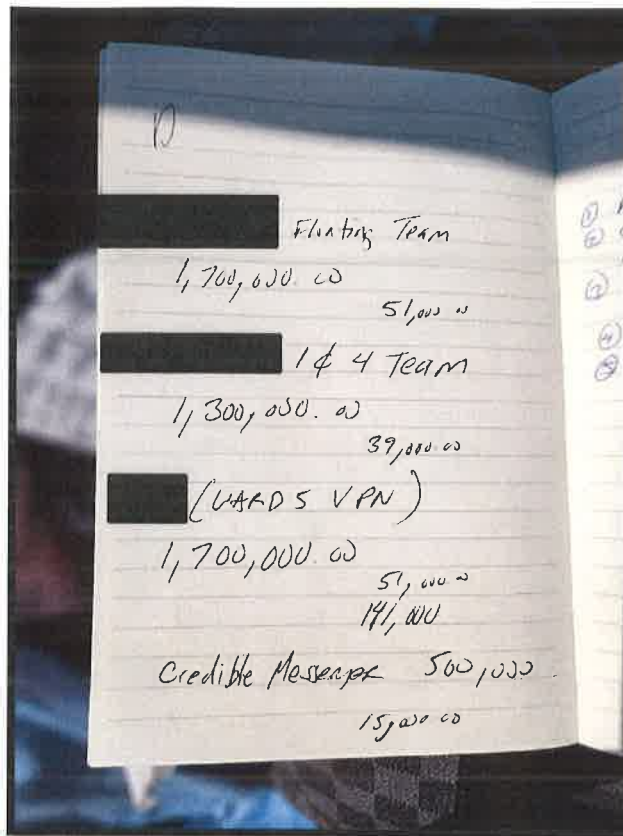 Floating Team
1,700,000.00
51,000.00
1 & 4 Team
1,300,000.00
39,000.00
(WARD 5 VPN)
1,700,000.00
51,000.00
141,000
Credible Messenger 500,000
15,000.00
①
②
③
④